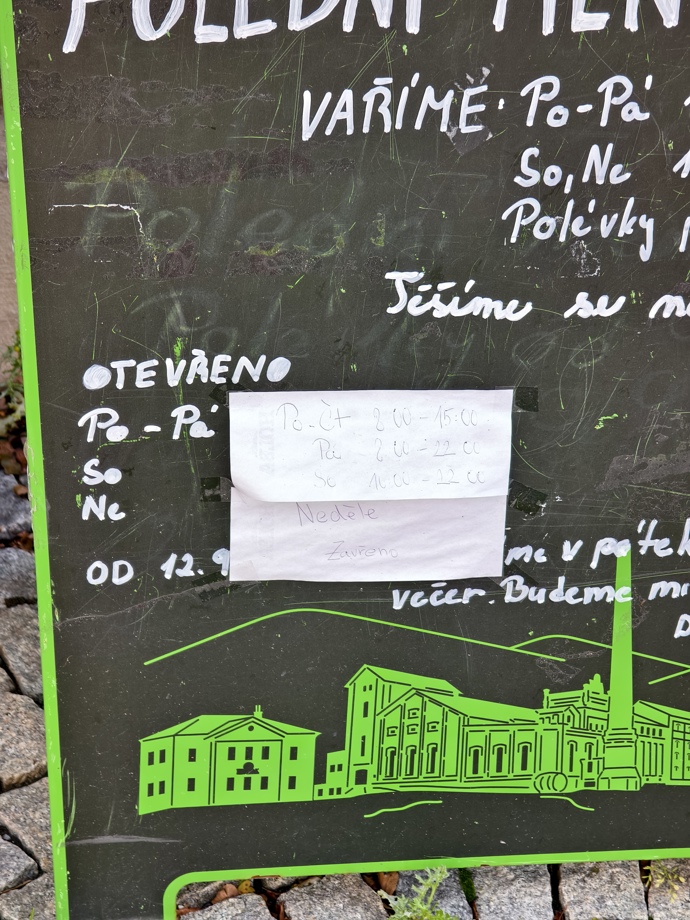 POLEDNÍ MEN
VAŘÍME: Po-Pá
So, Ne
Polévky
Těšíme se n
OTEVŘENO
Po - Pá
So
Ne
Po-Čt 8 00 - 15:00
Pá 8 00 - 22 00
So 11 00 - 22 00
Neděle
Zavřeno
OD 12.9
me v pátek
večer. Budeme mí
D